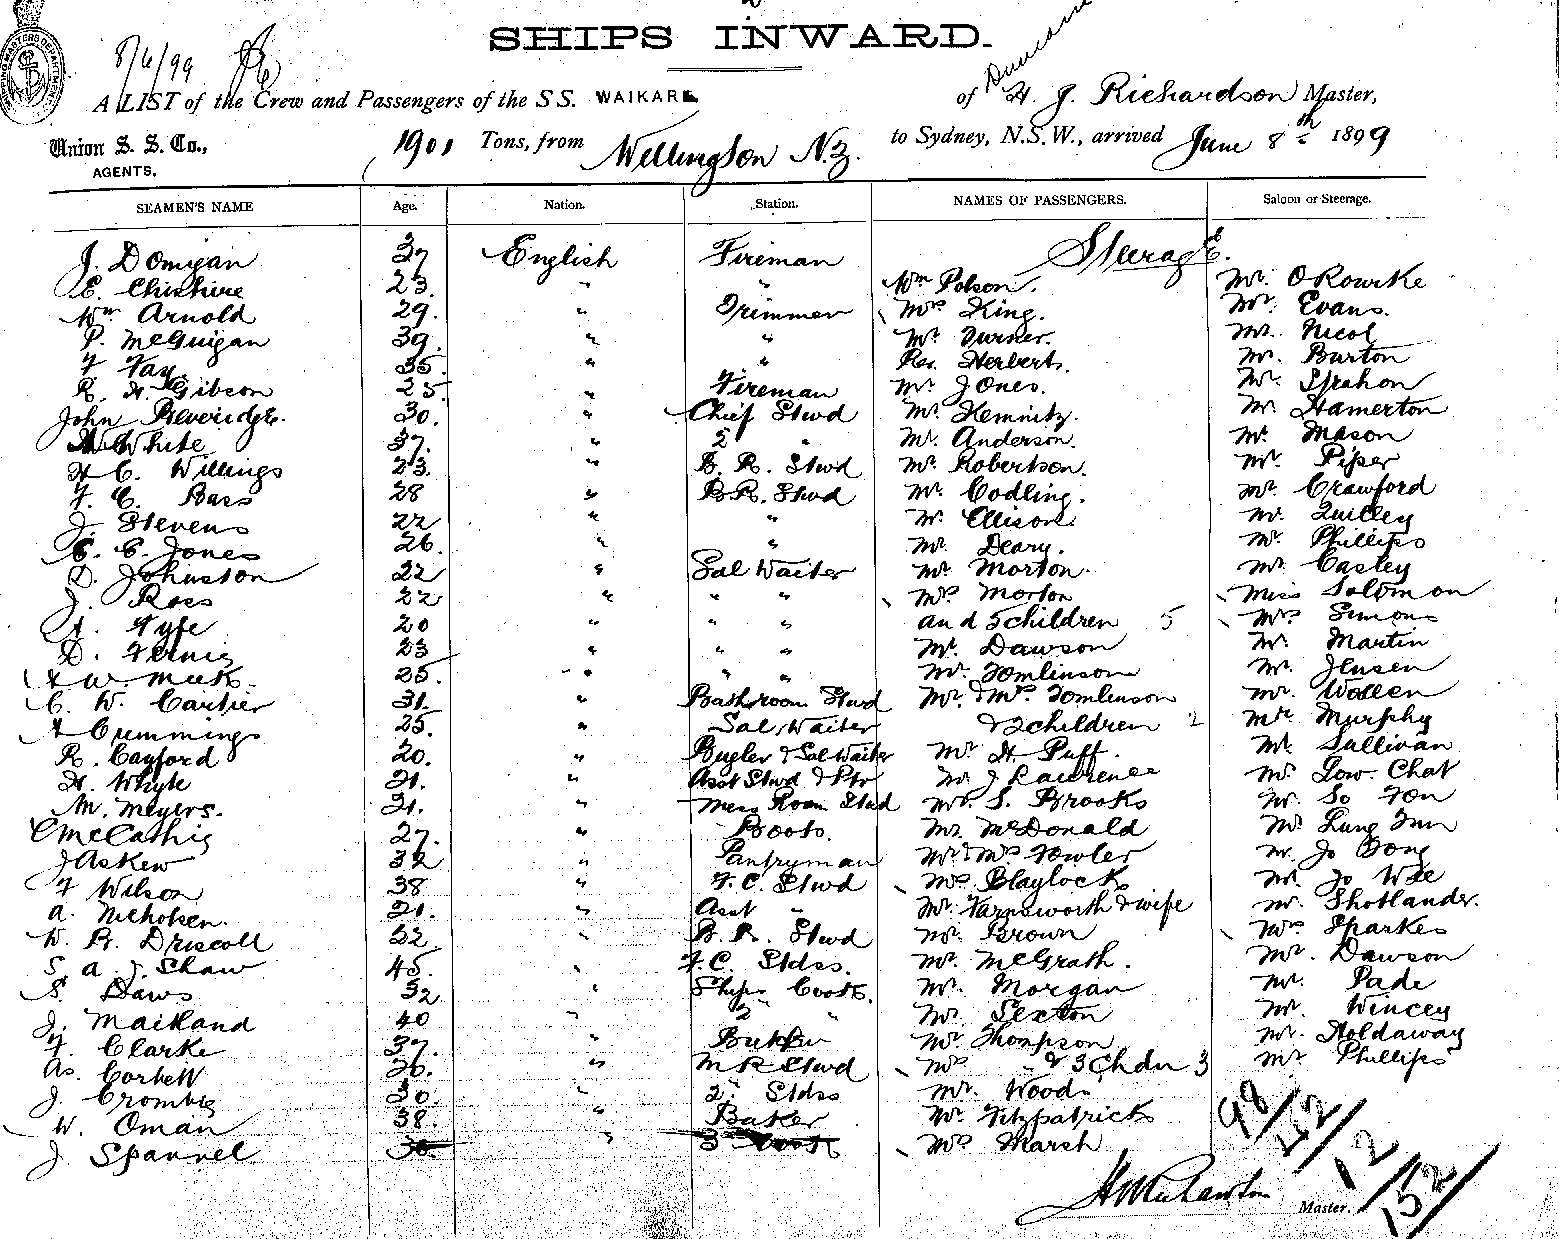 SHIPS INWARD.
8/6/99
A LIST of the Crew and Passengers of the SS. WAIKARE of H. J. Richardson Master,
Union S. S. Co., AGENTS. 1901 Tons, from Wellington N.Z. to Sydney, N.S.W., arrived June 8th 1899
SEAMEN'S NAME Age. Nation. Station. NAMES OF PASSENGERS. Saloon or Steerage.
J. Domigan 37 English Fireman Steerage.
E. Cheshire 23. " " Wm Polson. Mr. ORourke
Wm Arnold 29. " Trimmer Mrs King. Mr. Evans.
P. McGuigan 39. " " Mr Turner. Mr. Nicol
F. Fay. 35. " " Rev. Herbert. Mr. Burton
R. H. Gibson 25 " Fireman Mr Jones. Mr.
John Beveridge. 30. " Chief Stwd Mr. Mr Hamerton
White 37. " 2 " Mr. Anderson. Mr Mason
H C. Willings 23. " B. R. Stwd Mr. Robertson. Mr. Piper
F. C. Bass 28 " B.R. Stwd Mr. Codling. Mr. Crawford
J. Stevens 22 " " Mr. Ellison Mr. Quilley
C. C. Jones 26. " " Mr. Deary. Mr. Phillips
D. Johnston 22 " Sal Waiter Mr Morton. Mr. Casley
J. Ross 22 " " " Mrs Morton Miss Solomon
A. Fyfe 20 " " " and 5 children 5 Mrs Simons
D. Fernie 23 " " " Mr. Dawson Mr. Martin
H W. Meek. 25. " " " Mr. Tomlinson Mr. Jensen
C. W. Cartier 31. " Bathroom Stwd Mr. & Mrs. Tomlinson Mr. Wollen
A Cummings 25. " Sal Waiter & 2 children 2 Mr Murphy
R. Cayford 20. " Bugler & Sal Waiter Mr H. Puff. Mr. Sullivan
H. Whyte 21. " Asst Stwd & Ptr Mr J Lawrence Mr. Low. Chat
M. Meyers. 21. " Mess Room Stwd Mr. S. Brooks Mr. So Fon
C McCathie 27. " Boots. Mr. McDonald Mr Lung Fun
J Askew 32 " Pantryman Mr & Mrs Fowler Mr. Jo Gong
F Wilson 38 " F. C. Stwd Mrs Blaylock Mr. Jo Wee
A. Nicholsen. 21. " Asst " Mr. Farnsworth & wife Mr. Shotlander.
W. R. Driscoll 32. " B. R. Stwd Mr. Brown Mrs Sparkes
S. A. J. Shaw 45. " F. C. Stdss. Mr. McGrath. Mr. Dawson
S. Daws 32 " Ships Cook. Mr. Morgan Mr. Pade
J. Maitland 40 " 2 " Mr. Sexton Mr. Wincey
F. Clarke 37. " Butcher Mr Thompson Mr. Holdaway
As. Corbett 26. " M R Stwd Mrs " & 3 Chdn 3 Mr Phillips
J. Crombie 30. " 2. Stdss Mr. Wood
W. Oman 38. " Baker Mr. Fitzpatrick
J. Spannel 30 " 3 Cook Mrs Marsh
98/
42/
12
/152
Master.